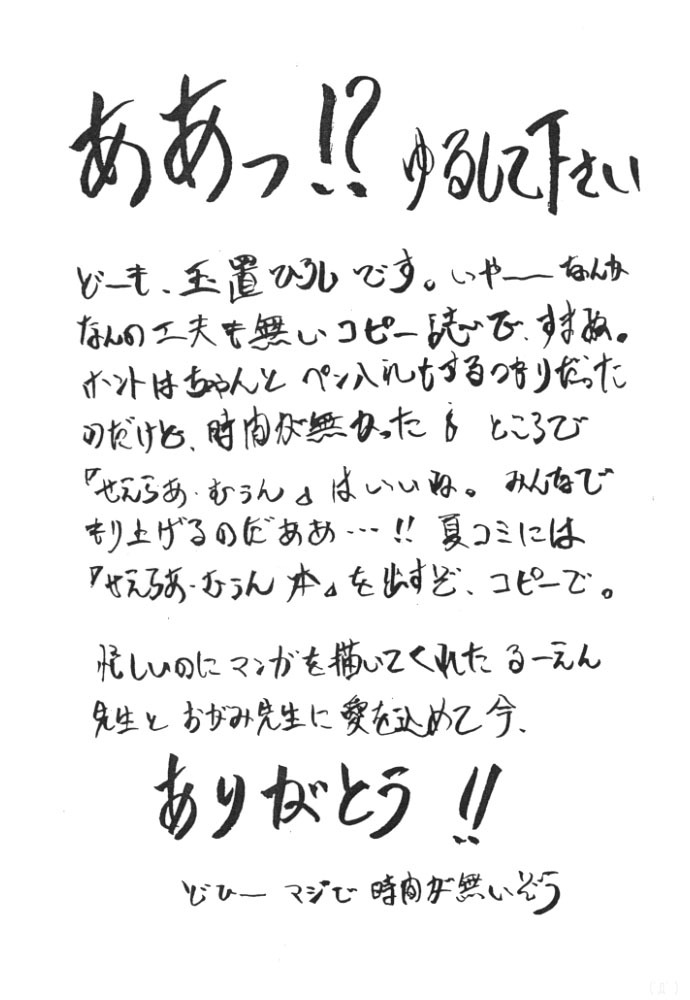 ああっ!? ゆるして下さい
どーも、玉置ひろしです。いやーなんか
なんの工夫も無いコピー誌で、すまぬ。
ホントはちゃんと ペン入れもするつもりだった
のだけど、時間が無かった ところで
『せえらあ・むうん』はいいね。みんなで
もり上げるのだああ…!! 夏コミには
『せえらあ・むうん本』を出すぞ、コピーで。
忙しいのにマンガを描いてくれた るーえん
先生と おがみ先生に 愛を込めて今、
ありがとう!!
どひー マジで 時間が無いぞう